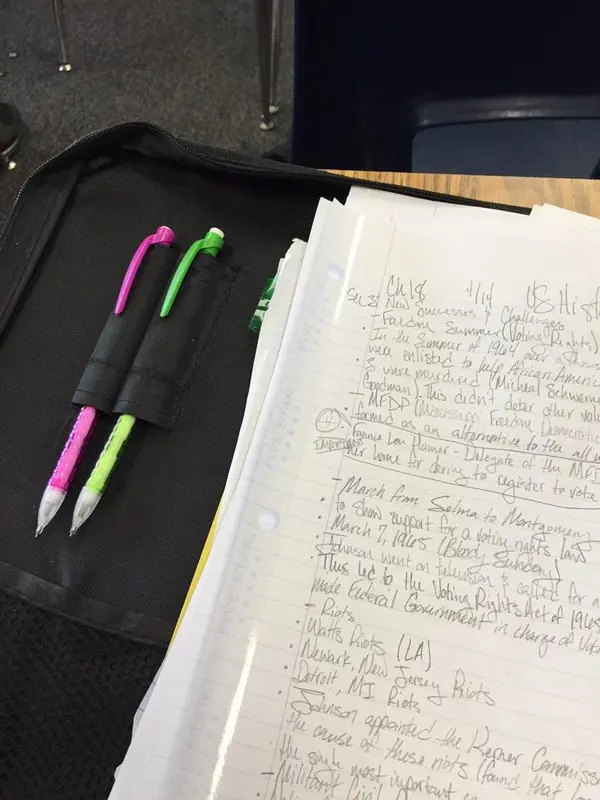 Ch 18 4/14 US Hist
Sec 3 New Successes & Challenges
- Freedom Summer (Voting Rights)
• In the Summer of 1964 over a thous
were enlisted to help African Americ
• 3 were murdered (Micheal Schwerne
Goodman). This didn't deter other volu
- MFDP (Mississippi Freedom Democratic
formed as an alternative to the all w
Fannie Lou Hamer - Delegate of the MFD
her home for daring to register to vote
IMPORTANT
- March from Selma to Montgomery
to show support for a voting rights law
• March 7, 1965 (Bloody Sunday)
• Johnson went on television & called for a
• This led to the Voting Rights Act of 1965
made Federal Government in charge of vot
- Riots
• Watts Riots (LA)
• Newark, New Jersey Riots
• Detroit, MI Riots
• Johnson appointed the Kerner Commiss
the cause of these riots (found that
the single most important
- Militant